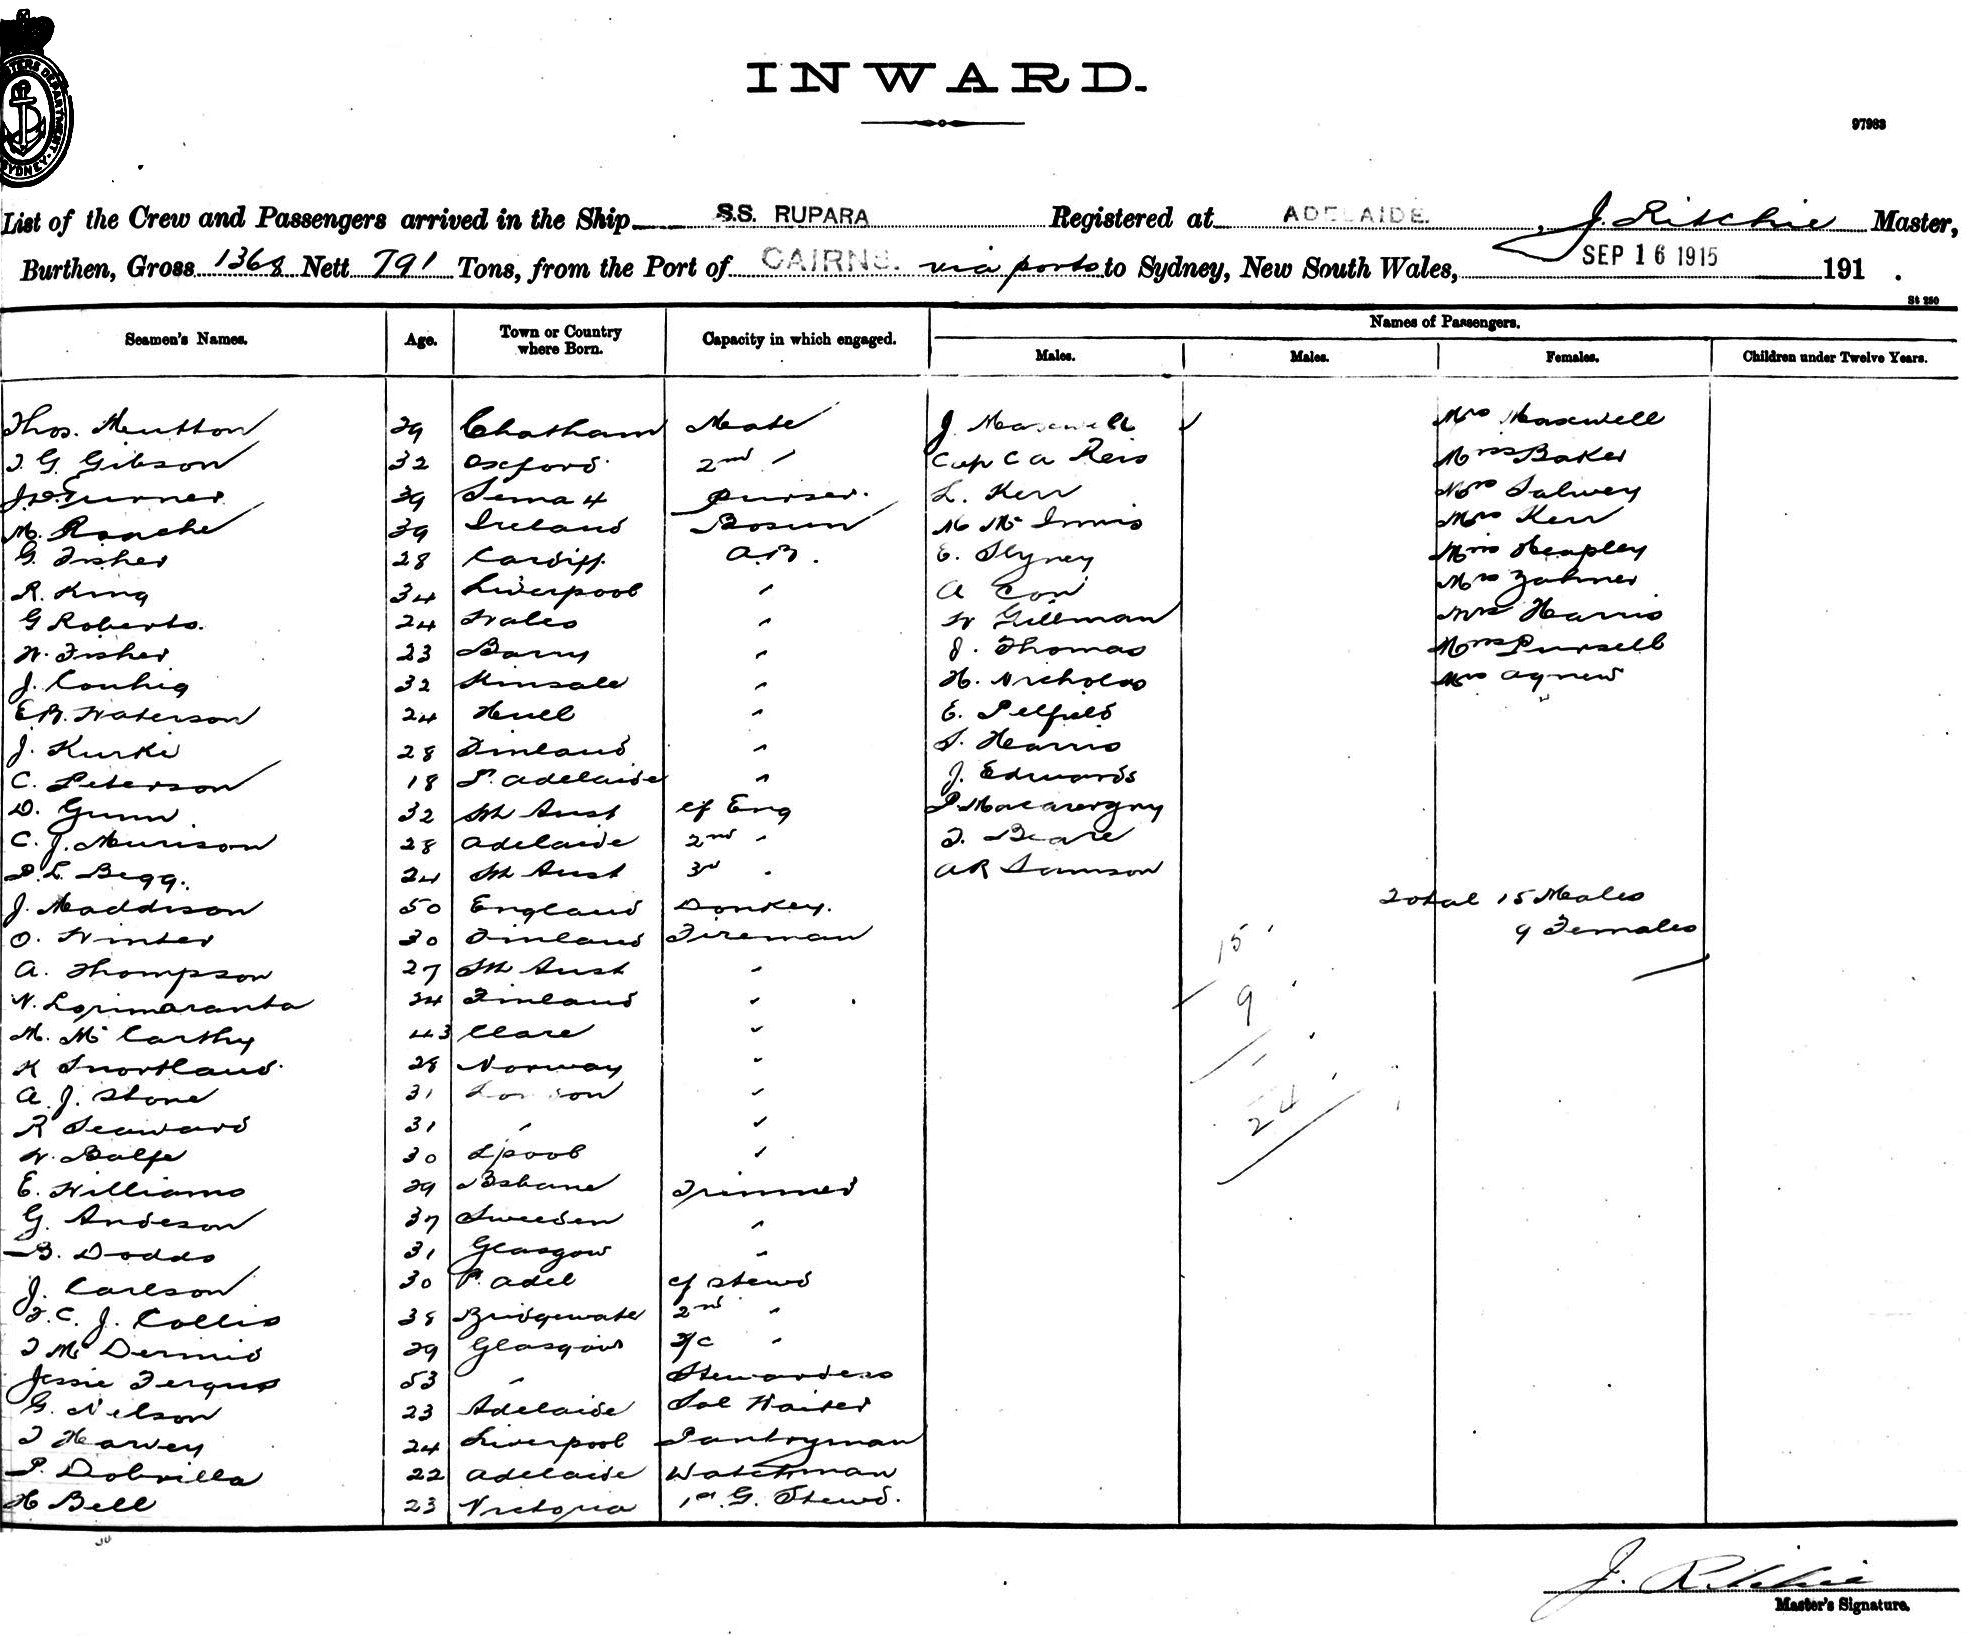 INWARD.
97983
List of the Crew and Passengers arrived in the Ship S.S. RUPARA Registered at ADELAIDE. , J. Ritchie Master,
Burthen, Gross 1368 Nett 791 Tons, from the Port of CAIRNS. via ports to Sydney, New South Wales, SEP 16 1915 191 .
St 250
Seamen's Names. Age. Town or Country where Born. Capacity in which engaged. Names of Passengers.
Males. Males. Females. Children under Twelve Years.
Thos. Mutton 29 Chatham Mate J. Maxwell Mrs Maxwell
T. G. Gibson 32 Oxford 2nd " Cap C A Reis Mrs Baker
Turner 39 purser. L. Kerr Mrs Salwey
M. Roache 39 Ireland Bosun M Mc Innis Mrs Kerr
G. Fisher 28 Cardiff. A.B. E. Slyney Miss Heapley
R. King 34 Liverpool " A Con Mrs Zahner
G Roberts. 24 Wales " W Gillman Mrs Harris
W. Fisher 23 Barry " J. Thomas Mrs Pursell
J. Conhig 32 Kinsale " H. Nicholas Mrs Agnew
E.R. Waterson 24 Hull " E. Pelfield
J. Kurki 28 Finland " S. Harris
C. Peterson 18 P. Adelaide " J. Edwards
D. Gunn 32 Sth Aust cf Eng P.
C. J. Murison 28 Adelaide 2nd " T. Beare
P. L. Begg. 24 Sth Aust 3rd " A R Samson
J. Maddison 50 England Donkey. Total 15 Males
O. Winter 30 Finland Fireman 15 9 Females
A. Thompson 27 Sth Aust "
N. Lorimaranta 24 Finland " 9
M. Mc Carthy 43 Clare "
K Snortland. 28 Norway "
A. J. Stone 31 London " 24
R Seaward 31 " "
W. Balfe 30 Lpool "
E. Williams 29 Bsbane Trimmer
G. Andeson 37 Sweeden "
B. Dodds 31 Glasgow "
J. Carlson 30 P. Adel cf stewd
F. C. J. Collis 38 Bridgewater 2nd "
T Mc Dermid 29 Glasgow F/C "
Jessie Fergus 53 " Stewardess
G. Nelson 23 Adelaide Sal Waiter
T Harvey 24 Liverpool Pantryman
P. Dobrilla 22 Adelaide Watchman
H Bell 23 Victoria 1st G. Stewd.
J. Ritchie
Master's Signature.